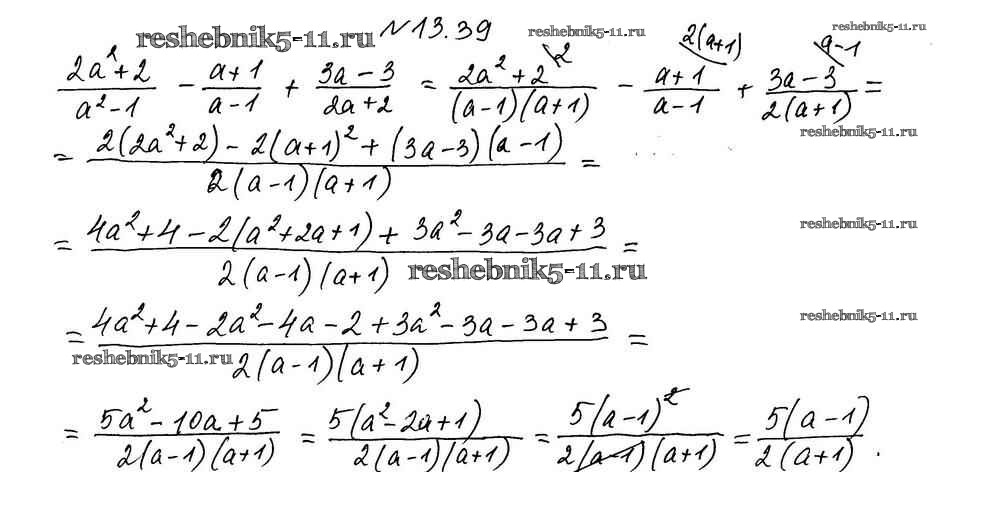 reshebnik5-11.ru №13.39 reshebnik5-11.ru reshebnik5-11.ru
2 2(a+1) a-1
(2a²+2)/(a²-1) - (a+1)/(a-1) + (3a-3)/(2a+2) = (2a²+2)/((a-1)(a+1)) - (a+1)/(a-1) + (3a-3)/(2(a+1)) =
reshebnik5-11.ru
= (2(2a²+2) - 2(a+1)² + (3a-3)(a-1))/(2(a-1)(a+1)) =
reshebnik5-11.ru
= (4a²+4-2(a²+2a+1) + 3a²-3a-3a+3)/(2(a-1)(a+1)) =
reshebnik5-11.ru
reshebnik5-11.ru
= (4a²+4-2a²-4a-2+3a²-3a-3a+3)/(2(a-1)(a+1)) =
reshebnik5-11.ru
= (5a²-10a+5)/(2(a-1)(a+1)) = (5(a²-2a+1))/(2(a-1)(a+1)) = (5(a-1)²)/(2(a-1)(a+1)) = (5(a-1))/(2(a+1)).